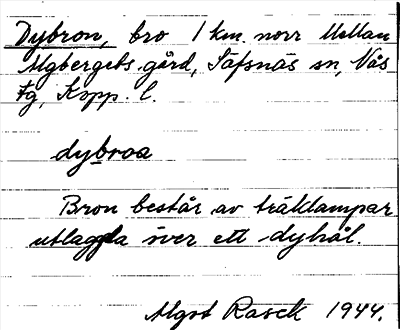 Dybron, bro 1 km. norr Mellan
Älgbergets gård, Säfsnäs sn, Näs
fg, Kopp. l.
dybroa
Bron består av träklampar
utlaggda över ett dyhål.
Algot Rasck 1944.